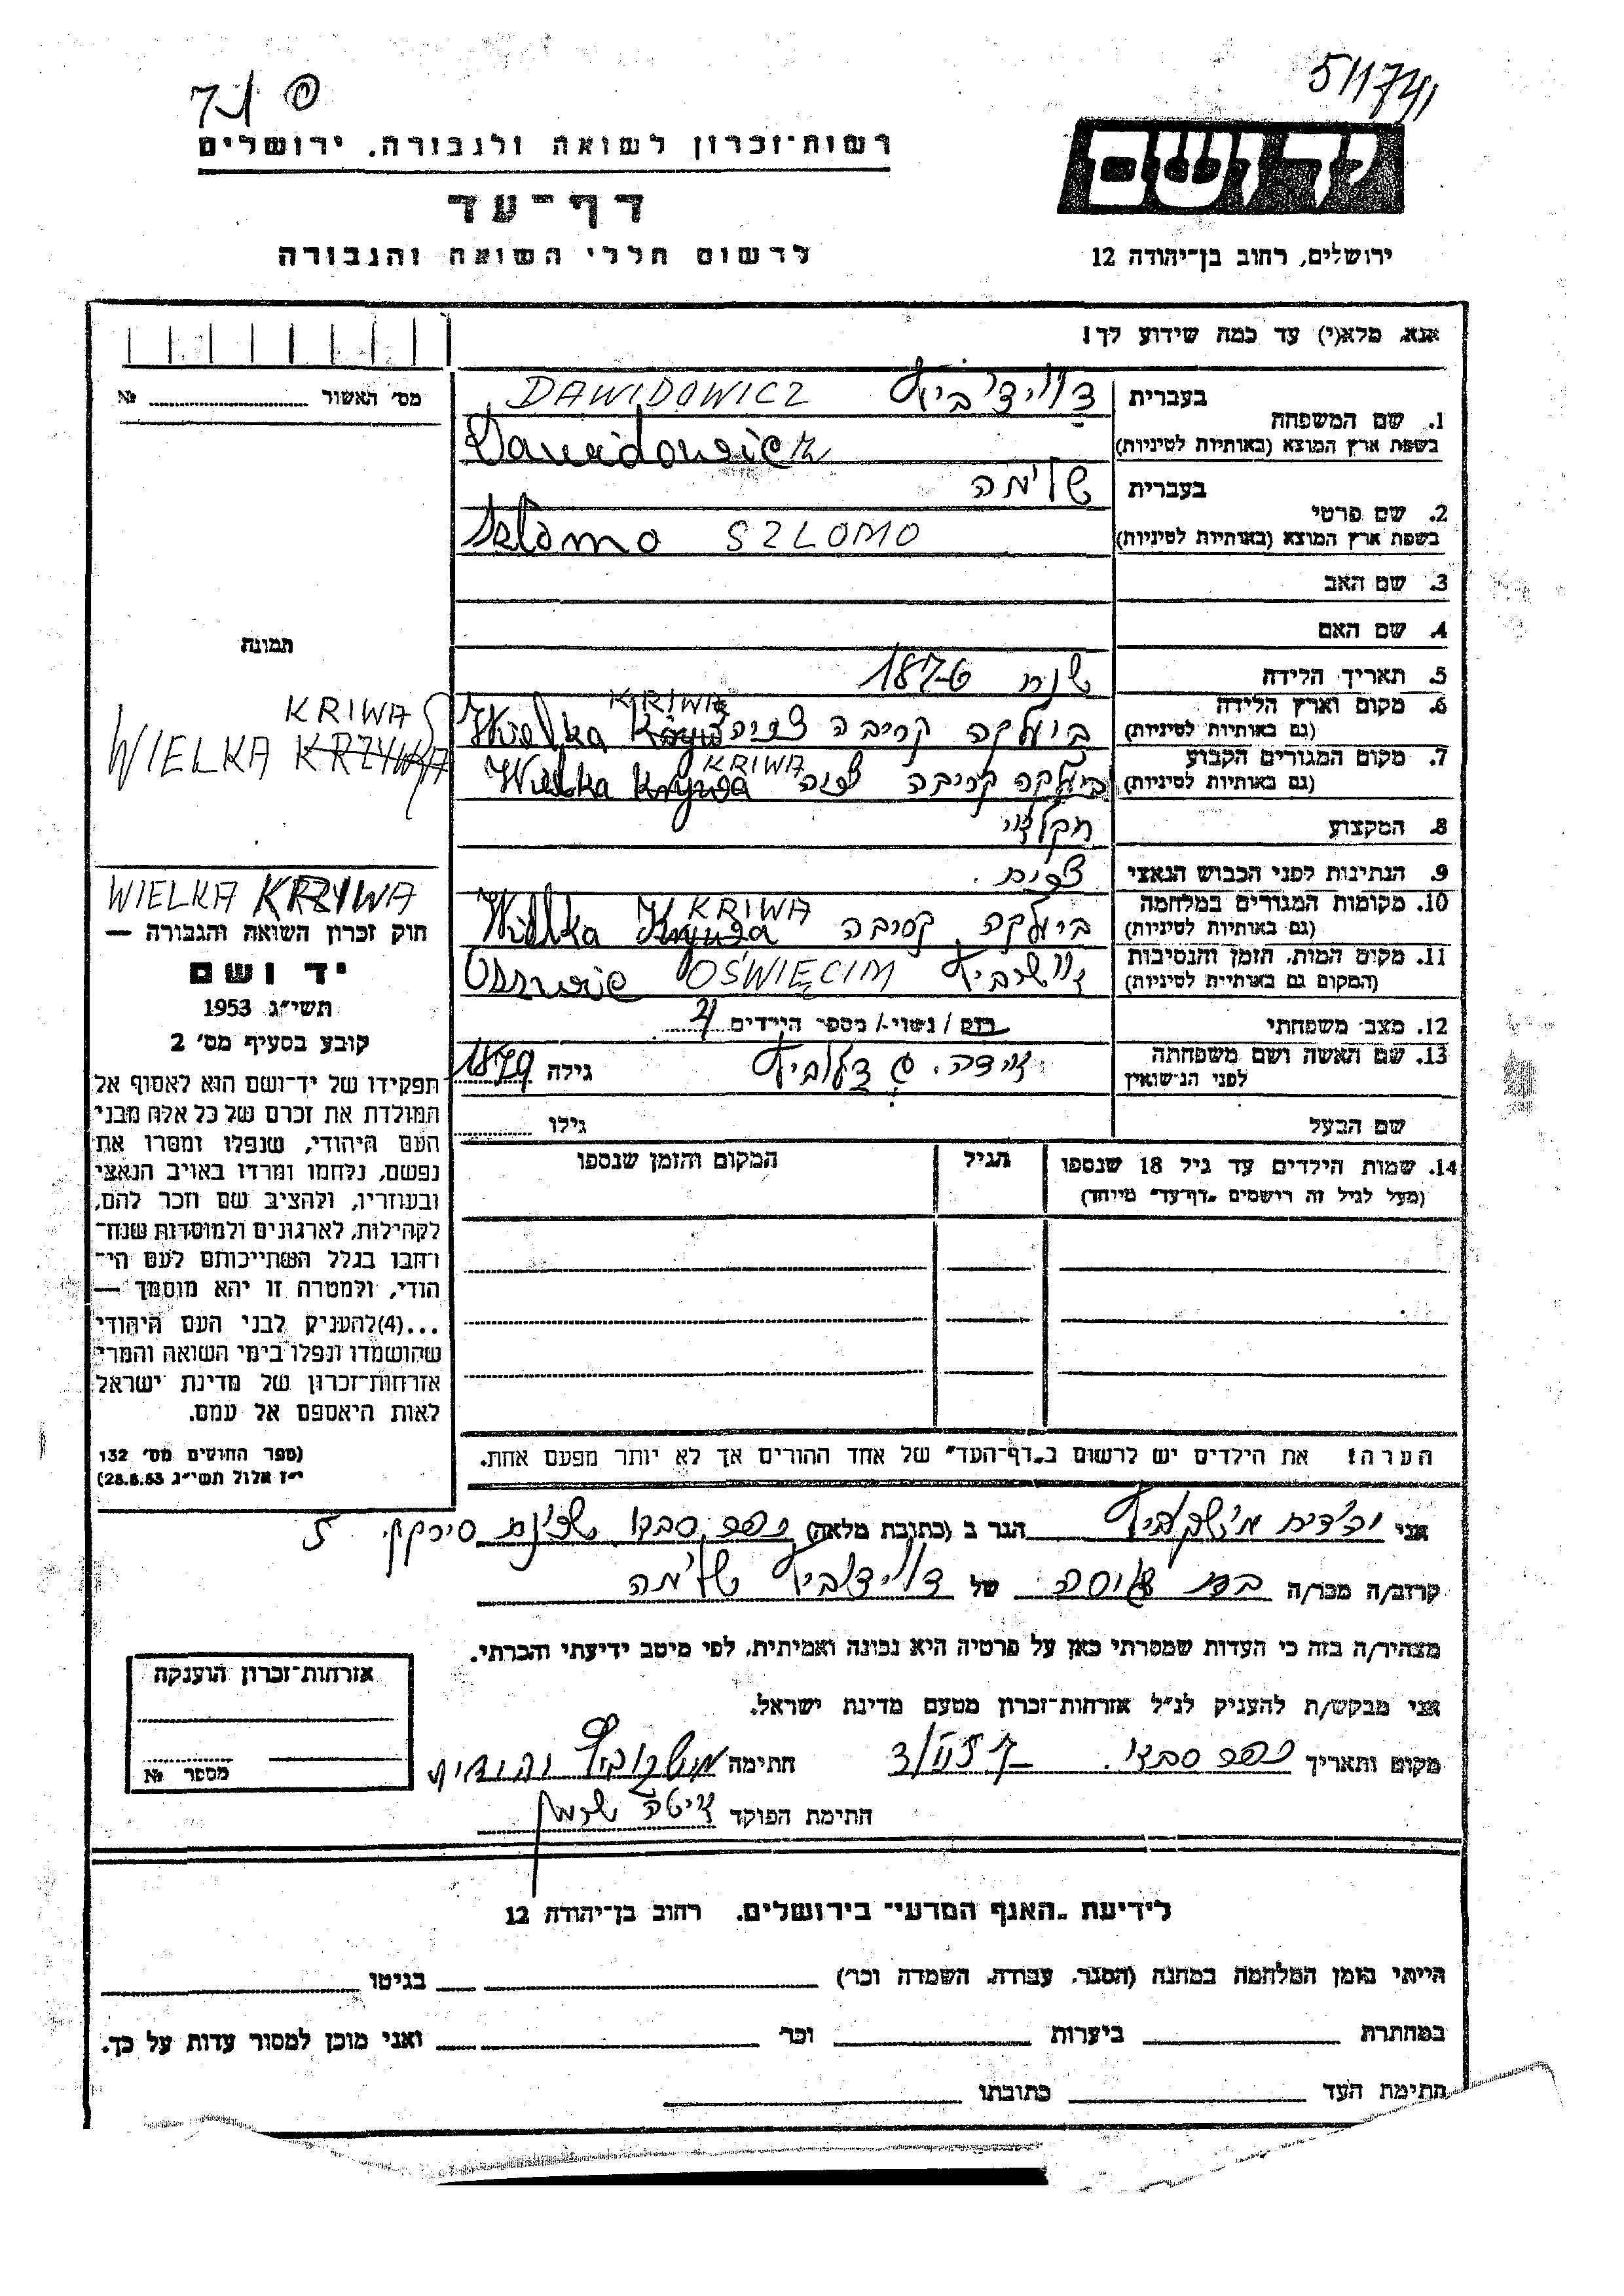 511741
רשות־זכרון לשואה ולגבורה, ירושלים
יד ושם
דף־עד
לרשום חללי השואה והגבורה
ירושלים, רחוב בן־יהודה 12
אנא, מלא(י) עד כמה שידוע לך!
מס׳ האשור № 
1. שם המשפחה בעברית דוידוביץ DAWIDOWICZ
בשפת ארץ המוצא (באותיות לטיניות) Dawidowicz
2. שם פרטי בעברית שלימה
בשפת ארץ המוצא (באותיות לטיניות) Szlomo SZLOMO
3. שם האב
4. שם האם
תמונה
5. תאריך הלידה שנת 1876
6. מקום וארץ הלידה (גם באותיות לטיניות) ביולקה קריבה Wielka KRIWA
7. מקום המגורים הקבוע (גם באותיות לטיניות) ביולקה קריבה Wielka KRIWA
KRIWA
WIELKA KRZYWA
8. המקצוע חקלאי
9. הנתינות לפני הכבוש הנאצי
10. מקומות המגורים במלחמה (גם באותיות לטיניות) ביולקה קריבה Wielka KRIWA
WIELKA KRZYWA
11. מקום המות, הזמן והנסיבות (המקום גם באותיות לטיניות) OŚWIĘCIM
12. מצב משפחתי רווק / נשוי / מספר הילדים
13. שם האשה ושם משפחתה לפני הנישואין גילה 1879
שם הבעל גילו
14. שמות הילדים עד גיל 18 שנספו הגיל המקום והזמן שנספו
(מעל לגיל זה רושמים „דף־עד״ מיוחד)
הערה! את הילדים יש לרשום ב„דף־העד״ של אחד ההורים אך לא יותר מפעם אחת.
חוק זכרון השואה והגבורה —
יד ושם
תשי״ג 1953
קובע בסעיף מס׳ 2
תפקידו של יד־ושם הוא לאסוף אל
המולדת את זכרם של כל אלה מבני
העם היהודי, שנפלו ומסרו את
נפשם, נלחמו ומרדו באויב הנאצי
ובעוזריו, ולהציב שם וזכר להם,
לקהילות, לארגונים ולמוסדות שנח־
רבו בגלל השתייכותם לעם הי־
הודי, ולמטרה זו יהא מוסמך —
...(4)להעניק לבני העם היהודי
שהושמדו ונפלו בימי השואה והמרי
אזרחות־זכרון של מדינת ישראל
לאות היאספם אל עמם.
(ספר החוקים מס׳ 132
י״ז אלול תשי״ג 28.8.53)
אני הגר ב (כתובת מלאה) 5
קרוב/ה מכר/ה של דוידוביץ שלימה
מצהיר/ה בזה כי העדות שמסרתי כאן על פרטיה היא נכונה ואמיתית, לפי מיטב ידיעתי והכרתי.
אני מבקש/ת להעניק לנ״ל אזרחות־זכרון מטעם מדינת ישראל.
מקום ותאריך חתימה
חתימת הפוקד
אזרחות־זכרון הוענקה
מספר №
לידיעת „האגף המדעי״ בירושלים, רחוב בן־יהודה 12
הייתי בזמן המלחמה במחנה (הסגר, עבודה, השמדה וכו׳) בגיטו
במחתרת ביערות וכו׳ ואני מוכן למסור עדות על כך.
חתימת העד כתובתו